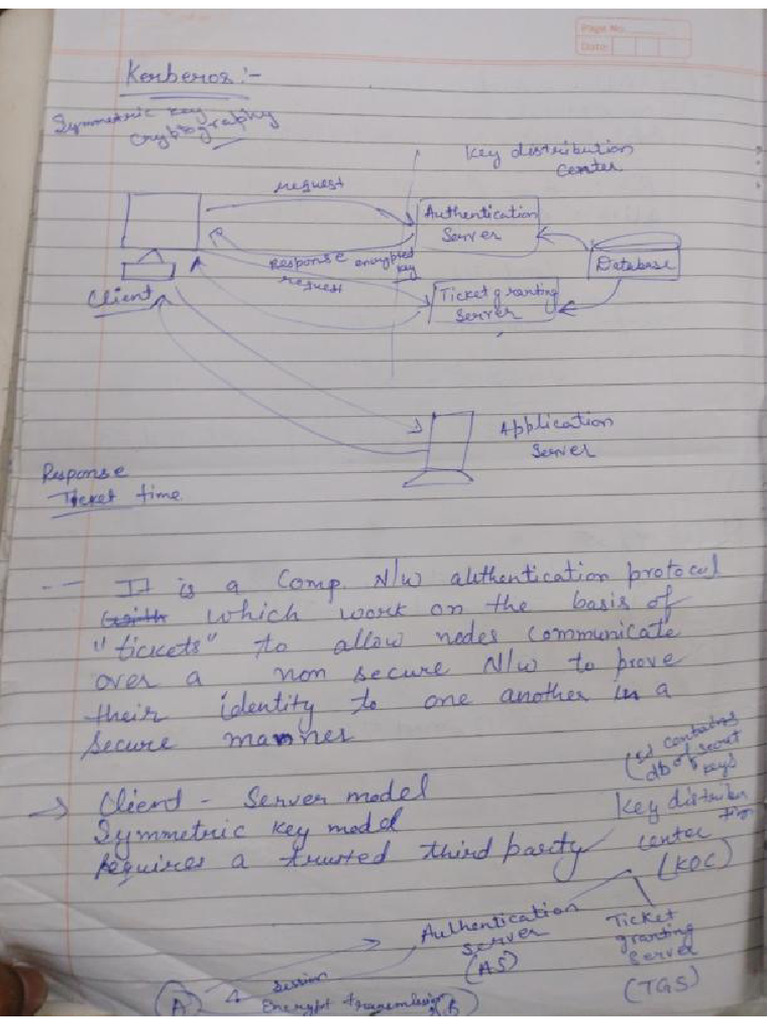 Page No:
Date:
Kerberos :-
Symmetric key
cryptography
Key distribution
center
request
Authentication
Server
Response encrypted
key
request
Database
Ticket granting
Server
Client
Application
Server
Response
Ticket time
-- It is a Comp. N/W authentication protocol
which work on the basis of
"tickets" to allow nodes communicate
over a non secure N/W to prove
their identity to one another in a
secure manner
(contains
db of secret
keys
→ Client - Server model
Symmetric key model
Requires a trusted third party
key distribu
tion
center
(KDC)
Authentication
Server
(AS)
Ticket
granting
Server
(TGS)
A
Session
Encrypt transmission
B